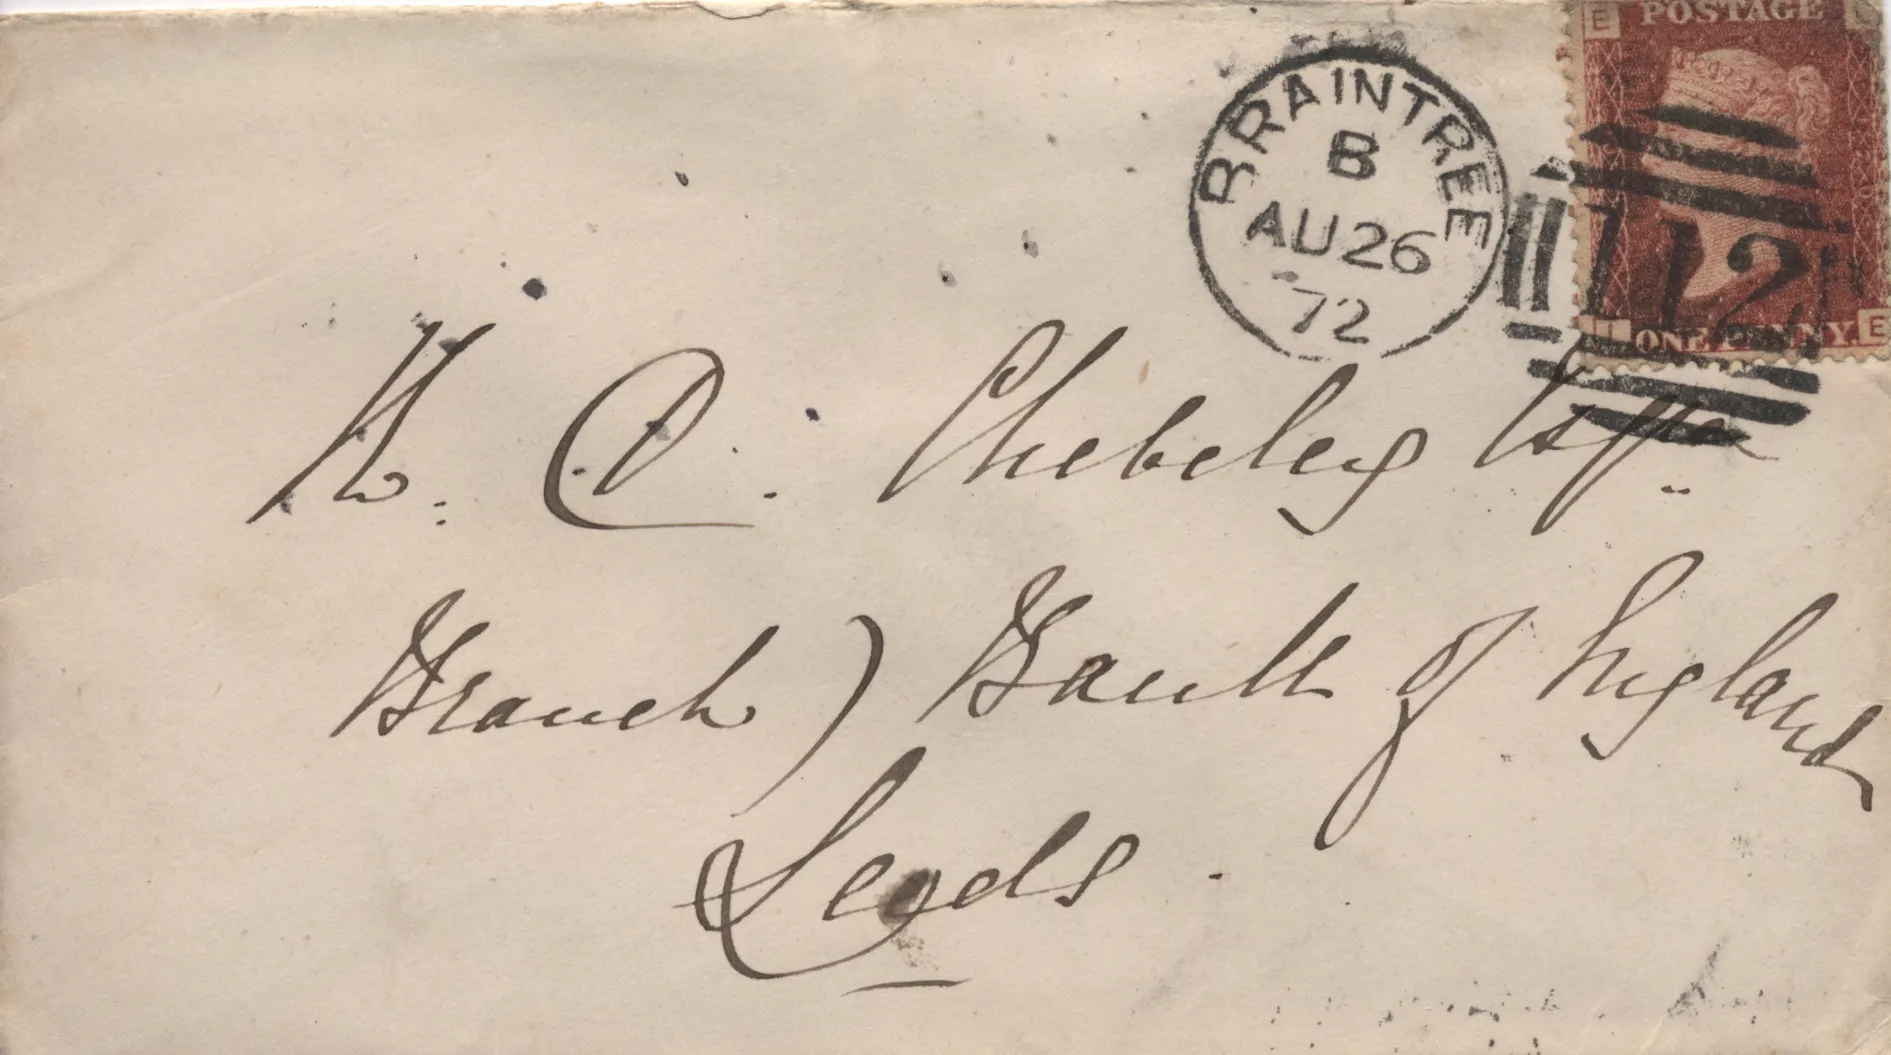 POSTAGE
E
BRAINTREE
B
AU 26
72
112
L E
ONE PENNY.
Esqre
Branch) Bank of England
Leeds.